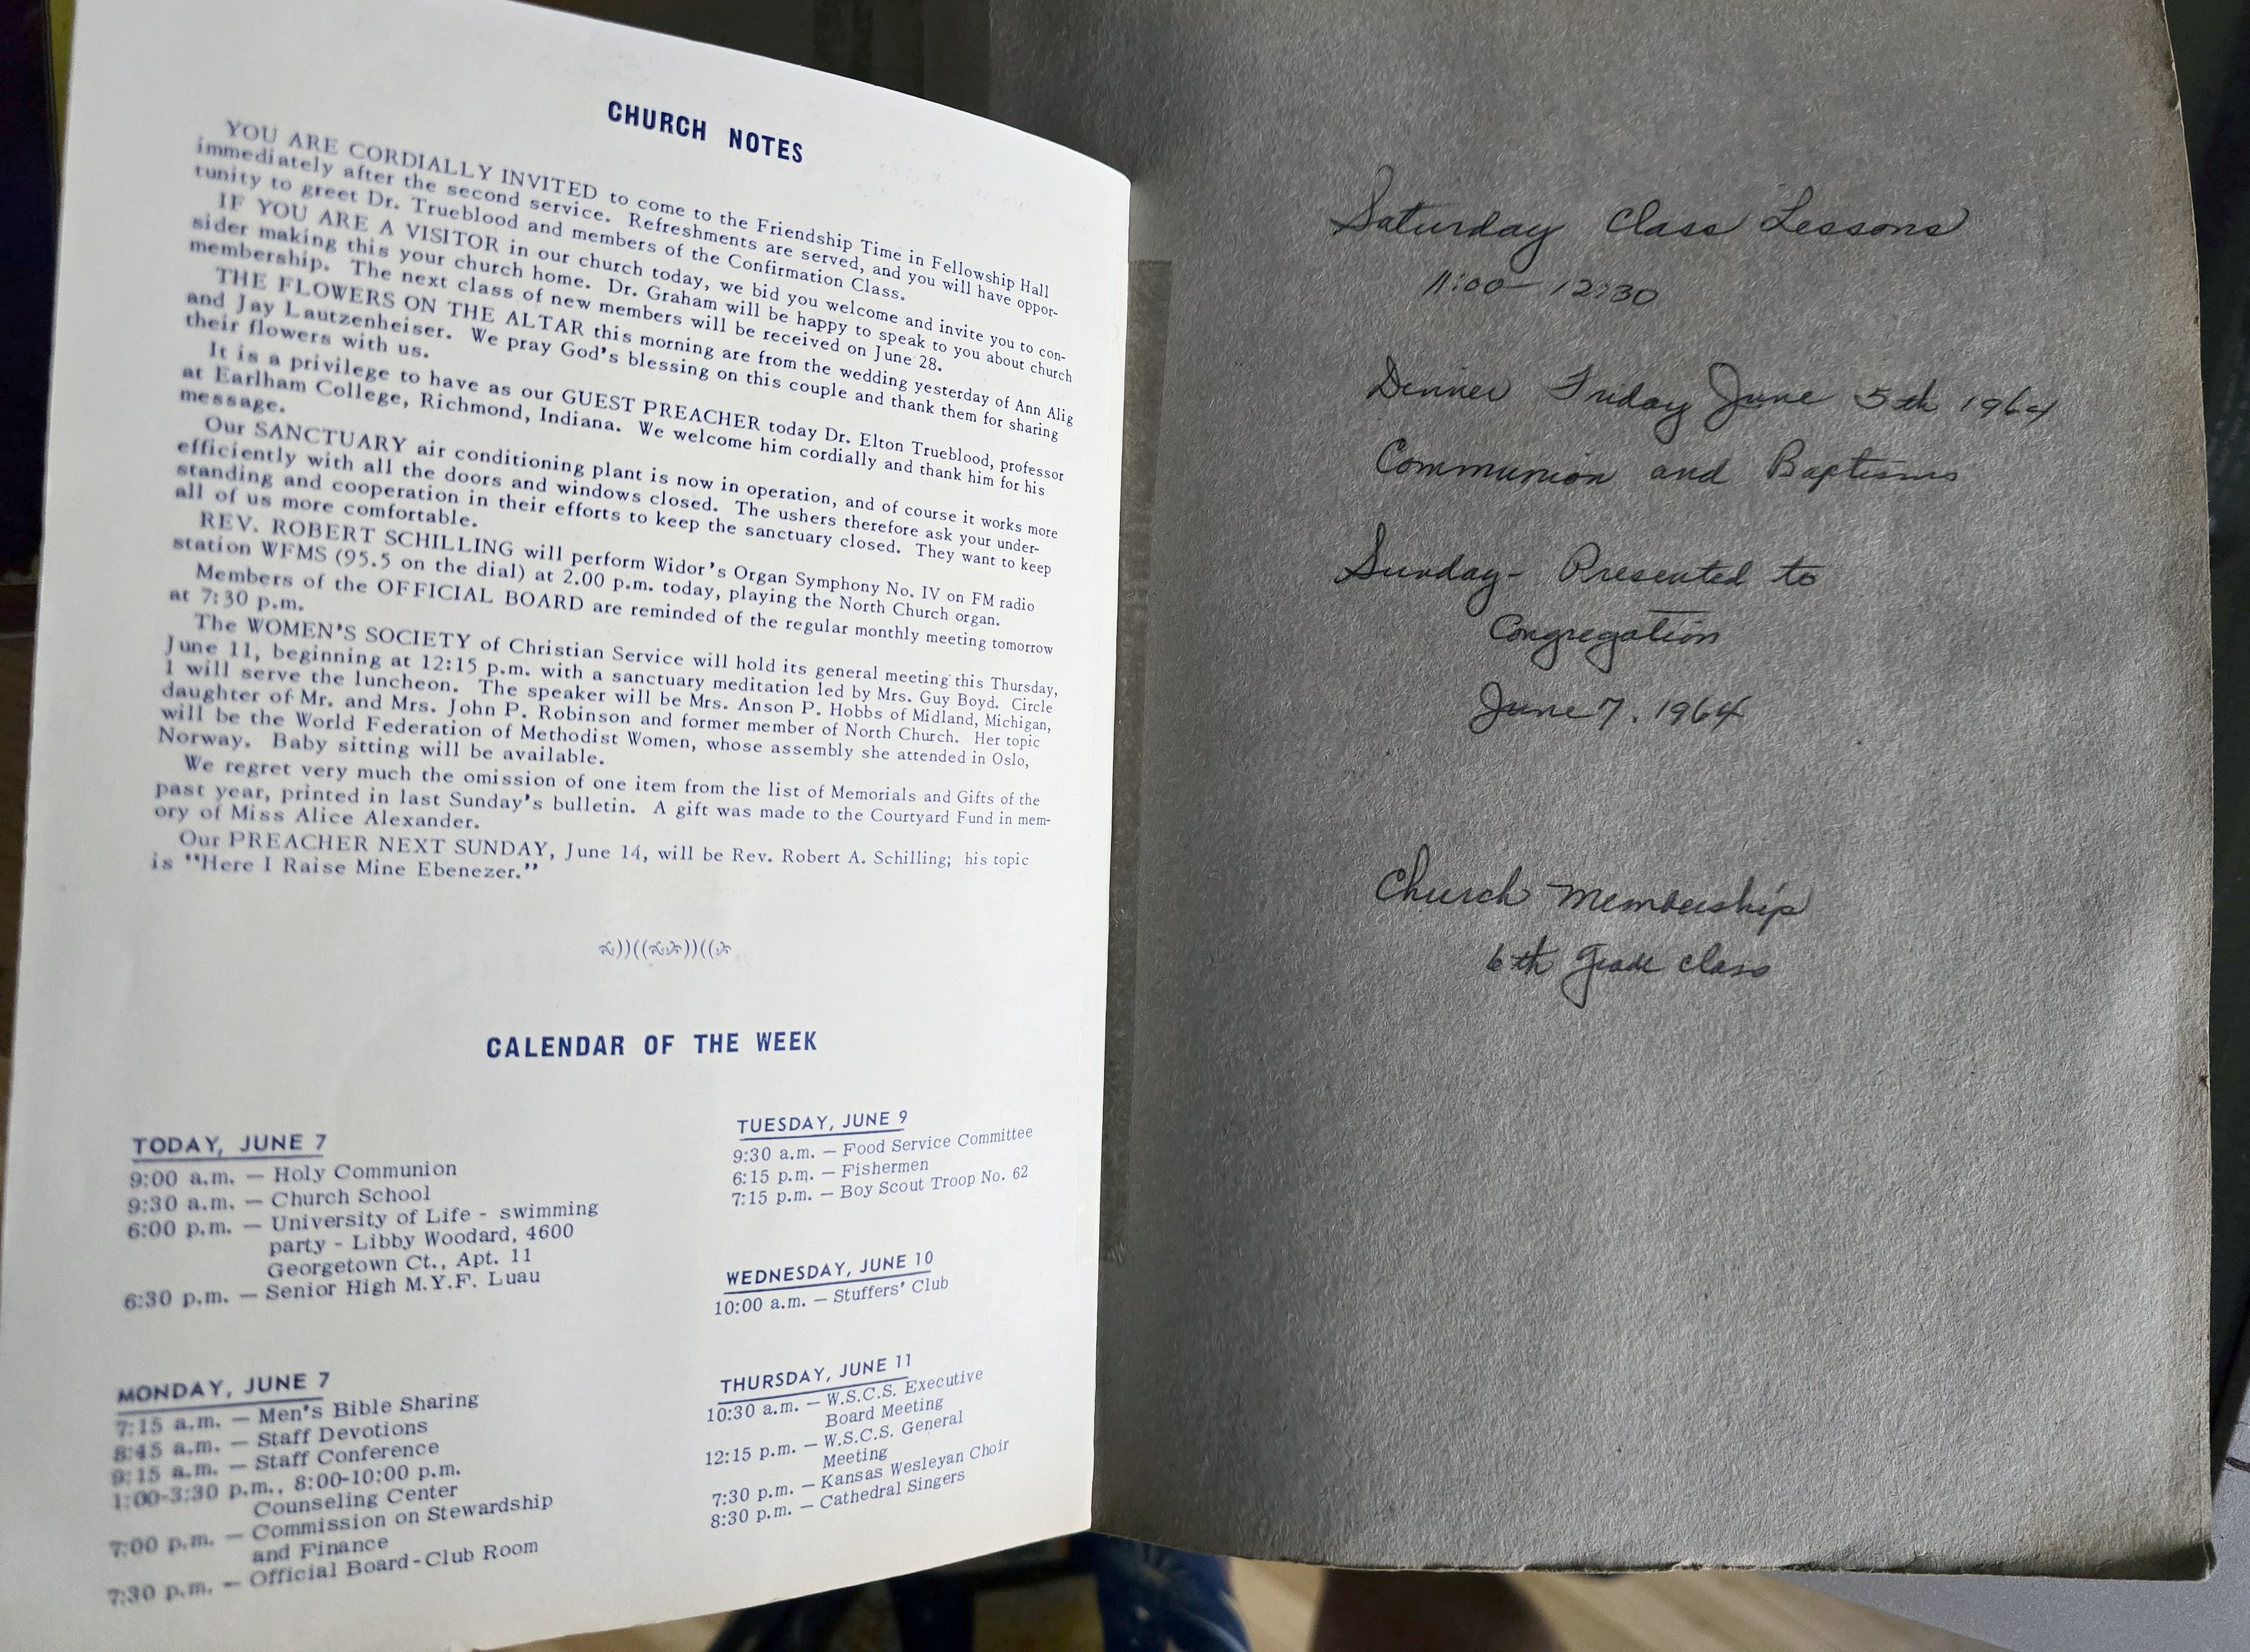 CHURCH NOTES
YOU ARE CORDIALLY INVITED to come to the Friendship Time in Fellowship Hall
immediately after the second service. Refreshments are served, and you will have oppor-
tunity to greet Dr. Trueblood and members of the Confirmation Class.
IF YOU ARE A VISITOR in our church today, we bid you welcome and invite you to con-
sider making this your church home. Dr. Graham will be happy to speak to you about church
membership. The next class of new members will be received on June 28.
THE FLOWERS ON THE ALTAR this morning are from the wedding yesterday of Ann Alig
and Jay Lautzenheiser. We pray God's blessing on this couple and thank them for sharing
their flowers with us.
It is a privilege to have as our GUEST PREACHER today Dr. Elton Trueblood, professor
at Earlham College, Richmond, Indiana. We welcome him cordially and thank him for his
message.
Our SANCTUARY air conditioning plant is now in operation, and of course it works more
efficiently with all the doors and windows closed. The ushers therefore ask your under-
standing and cooperation in their efforts to keep the sanctuary closed. They want to keep
all of us more comfortable.
REV. ROBERT SCHILLING will perform Widor's Organ Symphony No. IV on FM radio
station WFMS (95.5 on the dial) at 2.00 p.m. today, playing the North Church organ.
Members of the OFFICIAL BOARD are reminded of the regular monthly meeting tomorrow
at 7:30 p.m.
The WOMEN'S SOCIETY of Christian Service will hold its general meeting this Thursday,
June 11, beginning at 12:15 p.m. with a sanctuary meditation led by Mrs. Guy Boyd. Circle
1 will serve the luncheon. The speaker will be Mrs. Anson P. Hobbs of Midland, Michigan,
daughter of Mr. and Mrs. John P. Robinson and former member of North Church. Her topic
will be the World Federation of Methodist Women, whose assembly she attended in Oslo,
Norway. Baby sitting will be available.
We regret very much the omission of one item from the list of Memorials and Gifts of the
past year, printed in last Sunday's bulletin. A gift was made to the Courtyard Fund in mem-
ory of Miss Alice Alexander.
Our PREACHER NEXT SUNDAY, June 14, will be Rev. Robert A. Schilling; his topic
is "Here I Raise Mine Ebenezer."
CALENDAR OF THE WEEK
TODAY, JUNE 7
9:00 a.m. — Holy Communion
9:30 a.m. — Church School
6:00 p.m. — University of Life - swimming
party - Libby Woodard, 4600
Georgetown Ct., Apt. 11
6:30 p.m. — Senior High M.Y.F. Luau
MONDAY, JUNE 7
7:15 a.m. — Men's Bible Sharing
8:45 a.m. — Staff Devotions
9:15 a.m. — Staff Conference
1:00-3:30 p.m., 8:00-10:00 p.m.
Counseling Center
7:00 p.m. — Commission on Stewardship
and Finance
7:30 p.m. — Official Board - Club Room
TUESDAY, JUNE 9
9:30 a.m. — Food Service Committee
6:15 p.m. — Fishermen
7:15 p.m. — Boy Scout Troop No. 62
WEDNESDAY, JUNE 10
10:00 a.m. — Stuffers' Club
THURSDAY, JUNE 11
10:30 a.m. — W.S.C.S. Executive
Board Meeting
12:15 p.m. — W.S.C.S. General
Meeting
7:30 p.m. — Kansas Wesleyan Choir
8:30 p.m. — Cathedral Singers
Saturday Class Lessons
11:00 - 12:30
Dinner Friday June 5th 1964
Communion and Baptisms
Sunday - Presented to
Congregation
June 7. 1964
Church Membership
6th grade class